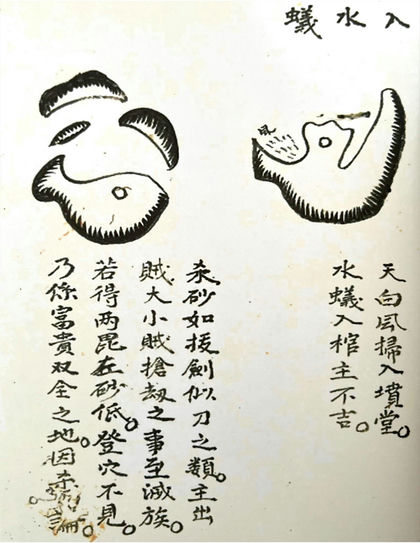 入水蟻
天白風掃入墳堂。
水蟻入棺主不吉。
杀砂如拔劍似刀之類。主出
賊大小賊搶刼之事至滅族。
若得两毘在砂低。登穴不見。
乃係富貴双全之地。因論。